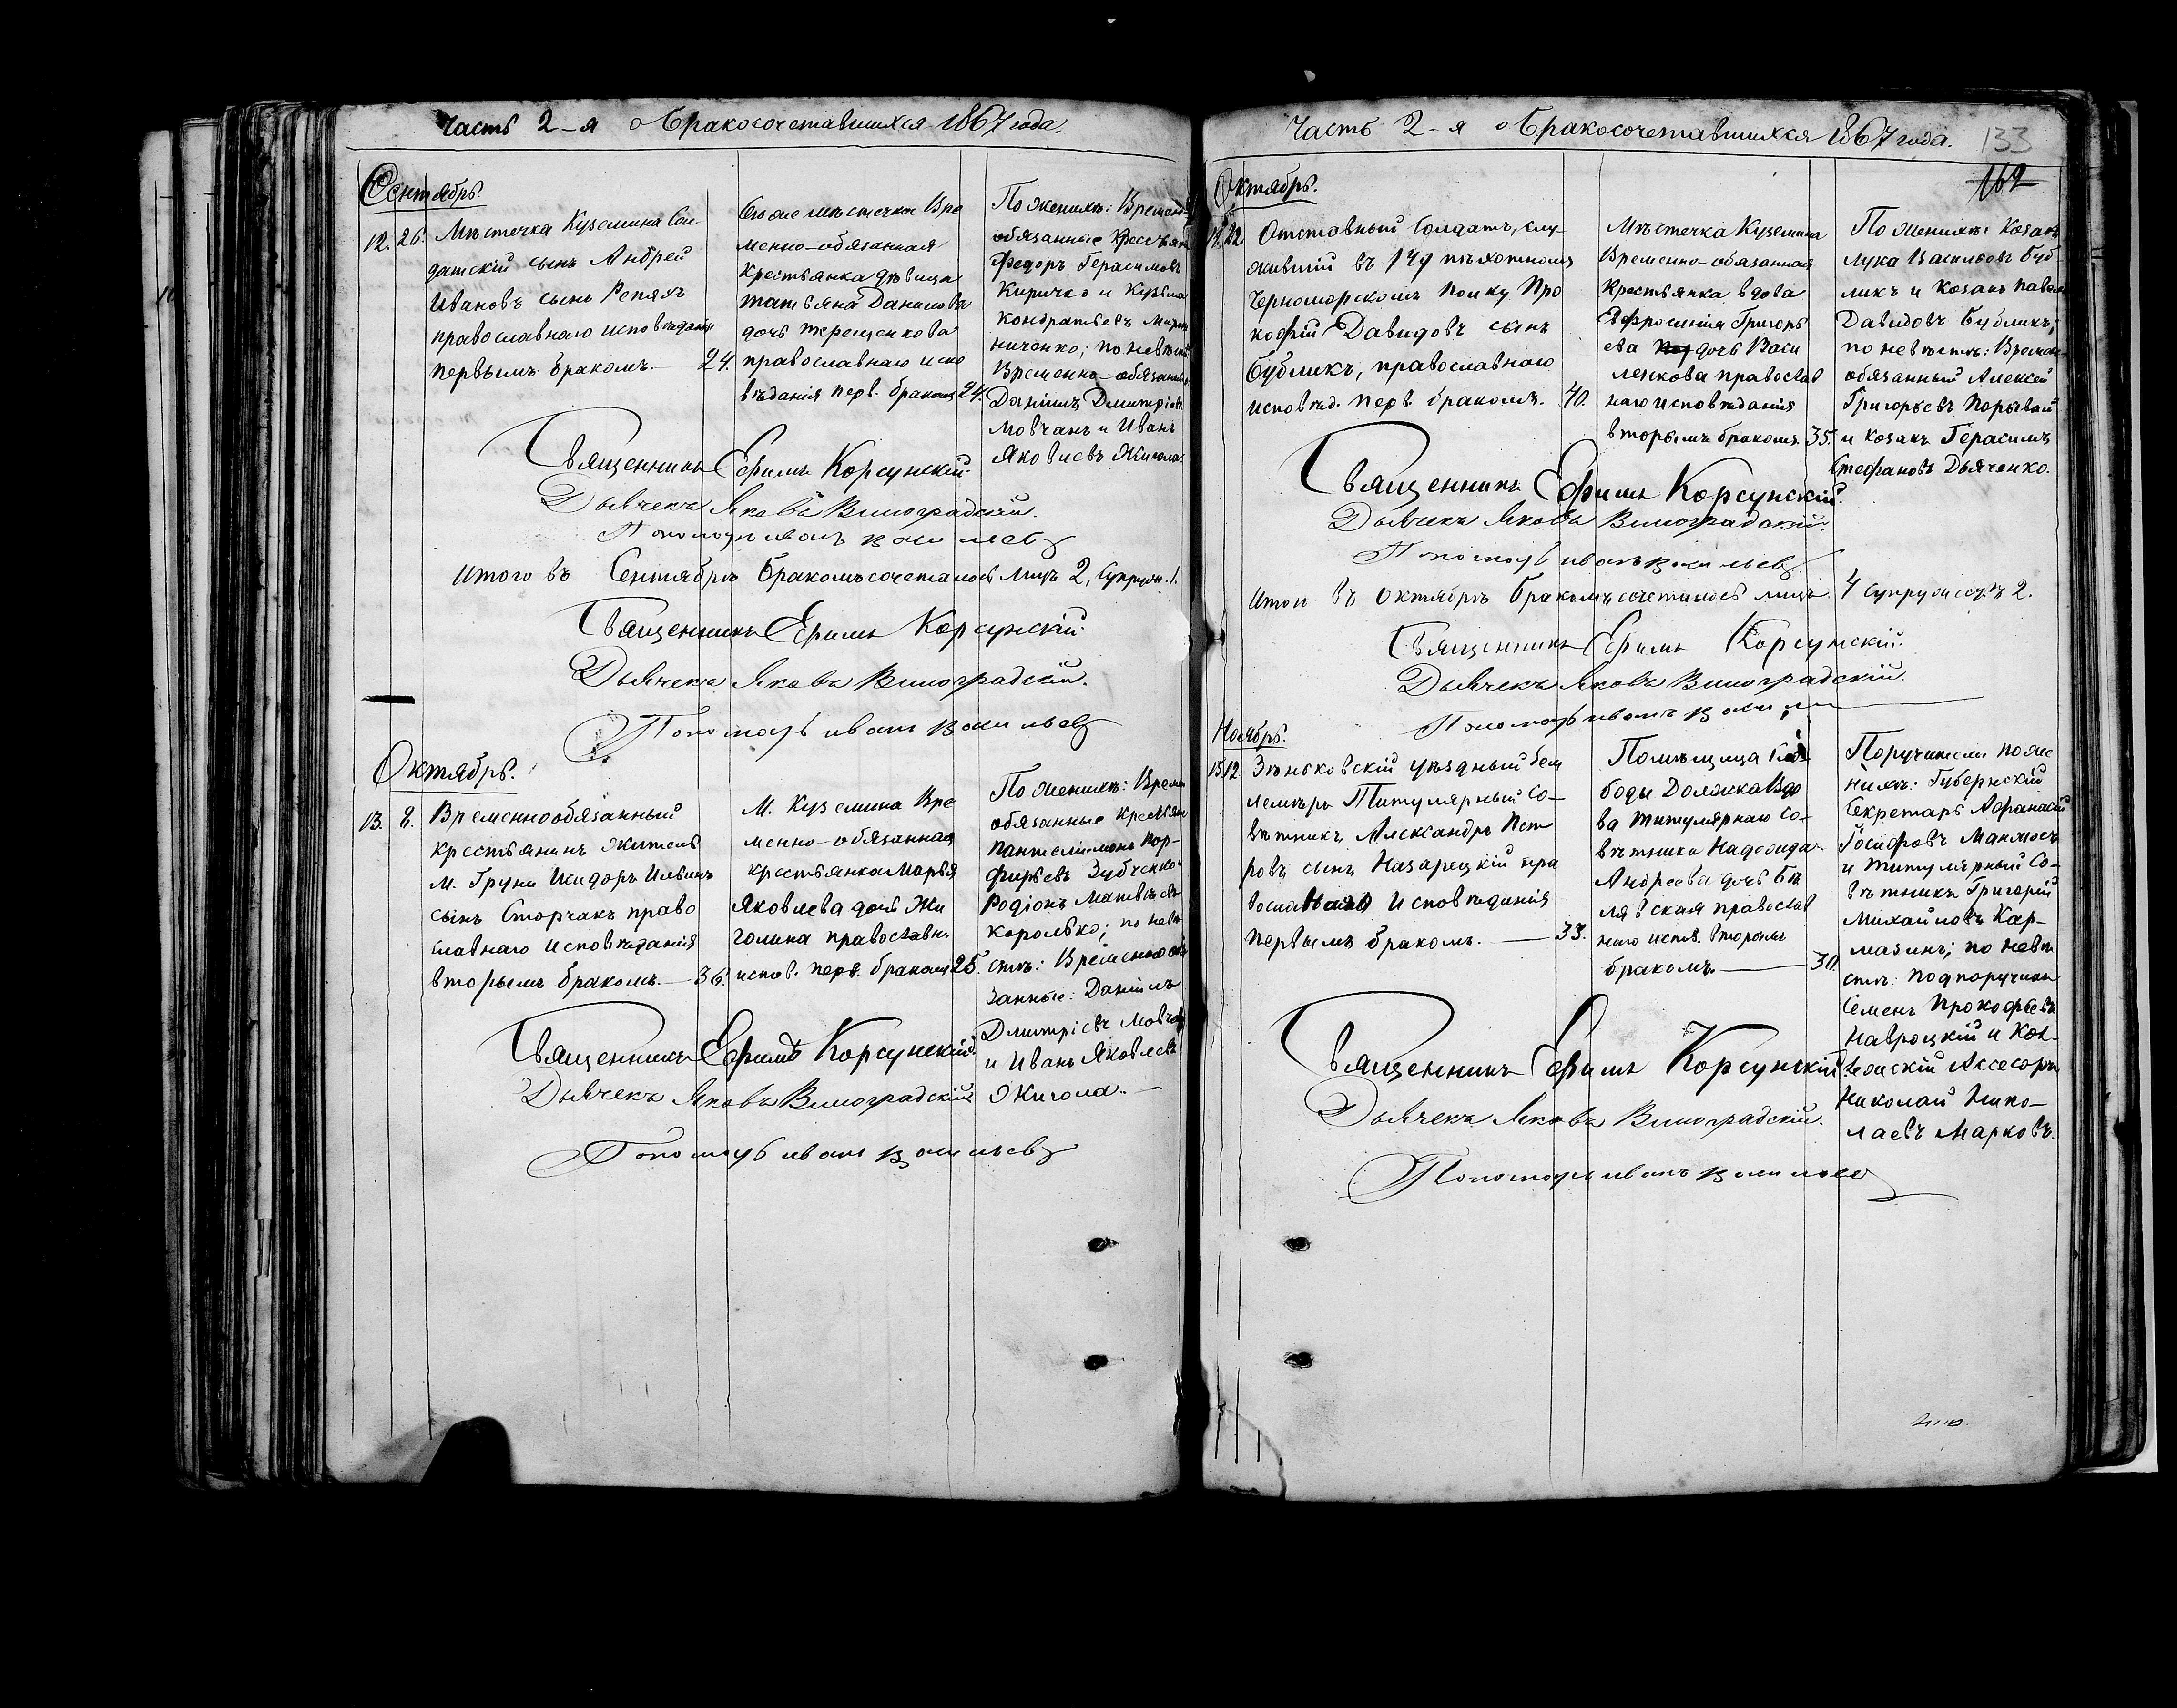 Часть 2-я о бракосочетавшихся 1867 года.
Сентябрь.
12. 26. Мѣстечка Куземина Сол
датскій сынъ Андрей
Ивановъ сынъ Репяхъ
православнаго исповѣданія
первымъ бракомъ. — 24.
Того же мѣстечка Вре
менно-обязанная
крестьянка дѣвица
Татьяна Данилова
дочь Терещенкова
православнаго испо
вѣданія перв. бракомъ 24.
По женихѣ: Временно
обязанные крестьяне
Федоръ Герасимовъ
Киричко и Кузьма
Кондратьевъ
ниченко; по невѣстѣ
Временно-обязанные
Даніилъ Димитріевъ
Мовчанъ и Иванъ
Яковлевъ Жигола.
Священникъ Ефимъ Корсунскій.
Дьячекъ Яковъ Виноградскій.
Пономарь Иванъ Васильевъ
Итого въ Сентябрѣ бракомъ сочеталось лицъ 2, супруж. 1.
Священникъ Ефимъ Корсунскій.
Дьячекъ Яковъ Виноградскій.
Пономарь Иванъ Васильевъ
Октябрь.
13. 8. Временнообязанный
крестьянинъ житель
М. Груни Исидоръ Ильинъ
сынъ Сторчакъ право
славнаго исповѣданія
вторымъ бракомъ. — 36.
М. Куземина Вре
менно-обязанная
крестьянка Марья
Яковлева дочь Жи
голина православн.
испов. перв. бракомъ 25.
По женихѣ: Времен
обязанные крестьяне
Пантелимонъ Пор-
фирьевъ Зубченко
Родіонъ Матвѣевъ
Королько; по невѣ
стѣ: Временно обя
занные: Даніилъ
Димитріевъ Мовчанъ
и Иванъ Яковлевъ
Жигола. —
Священникъ Ефимъ Корсунскій.
Дьячекъ Яковъ Виноградскій.
Пономарь Иванъ Васильевъ
Часть 2-я о бракосочетавшихся 1867 года.
133
162
Октябрь.
14. 22. Отставный Солдатъ, слу-
жившій въ 149 пѣхотномъ
Черноморскомъ полку Про
кофій Давидовъ сынъ
Бубликъ, православнаго
исповѣд. перв. бракомъ. 40.
Мѣстечка Куземина
Временно-обязанная
крестьянка вдова
Евфросинія Григорь
ева дочь Васи
ленкова православ
наго исповѣданія
вторымъ бракомъ 35.
По женихѣ: Козакъ
Лука Васильевъ Буб-
ликъ и Козакъ Павелъ
Давидовъ Бубликъ;
по невѣстѣ: Временно
обязанный Алексѣй
Григорьевъ Порывай
и козакъ Герасимъ
Стефановъ Дьяченко.
Священникъ Ефимъ Корсунскій.
Дьячекъ Яковъ Виноградскій.
Пономарь Иванъ Васильевъ
Итого въ Октябрѣ бракомъ сочеталось лицъ 4 супружеств. 2.
Священникъ Ефимъ Корсунскій.
Дьячекъ Яковъ Виноградскій.
Пономарь Иванъ
Ноябрь.
15. 12. Зѣньковскій уѣздный Зем
лемѣръ Титулярный Со-
вѣтникъ Александръ Пет
ровъ сынъ Назарецкій пра
вославнаго исповѣданія
первымъ бракомъ. — 33.
Помѣщица Сло
боды Должка Вдо
ва Титулярнаго Со-
вѣтника Надежда
Андреева дочь Бѣ
лявская православ
наго испов. вторымъ
бракомъ. — 30.
Поручители по же
нихѣ: Губернскій
Секретарь Афанасій
Іосифовъ
и Титулярный Со-
вѣтникъ Григорій
Михайловъ Кар-
мазинъ; по невѣ
стѣ: Подпоручикъ
Семенъ Прокофьевъ
Навроцкій и Кол-
лежскій Ассесоръ
Николай Нико-
лаевъ Марковъ.
Священникъ Ефимъ Корсунскій
Дьячекъ Яковъ Виноградскій.
Пономарь Иванъ Васильевъ